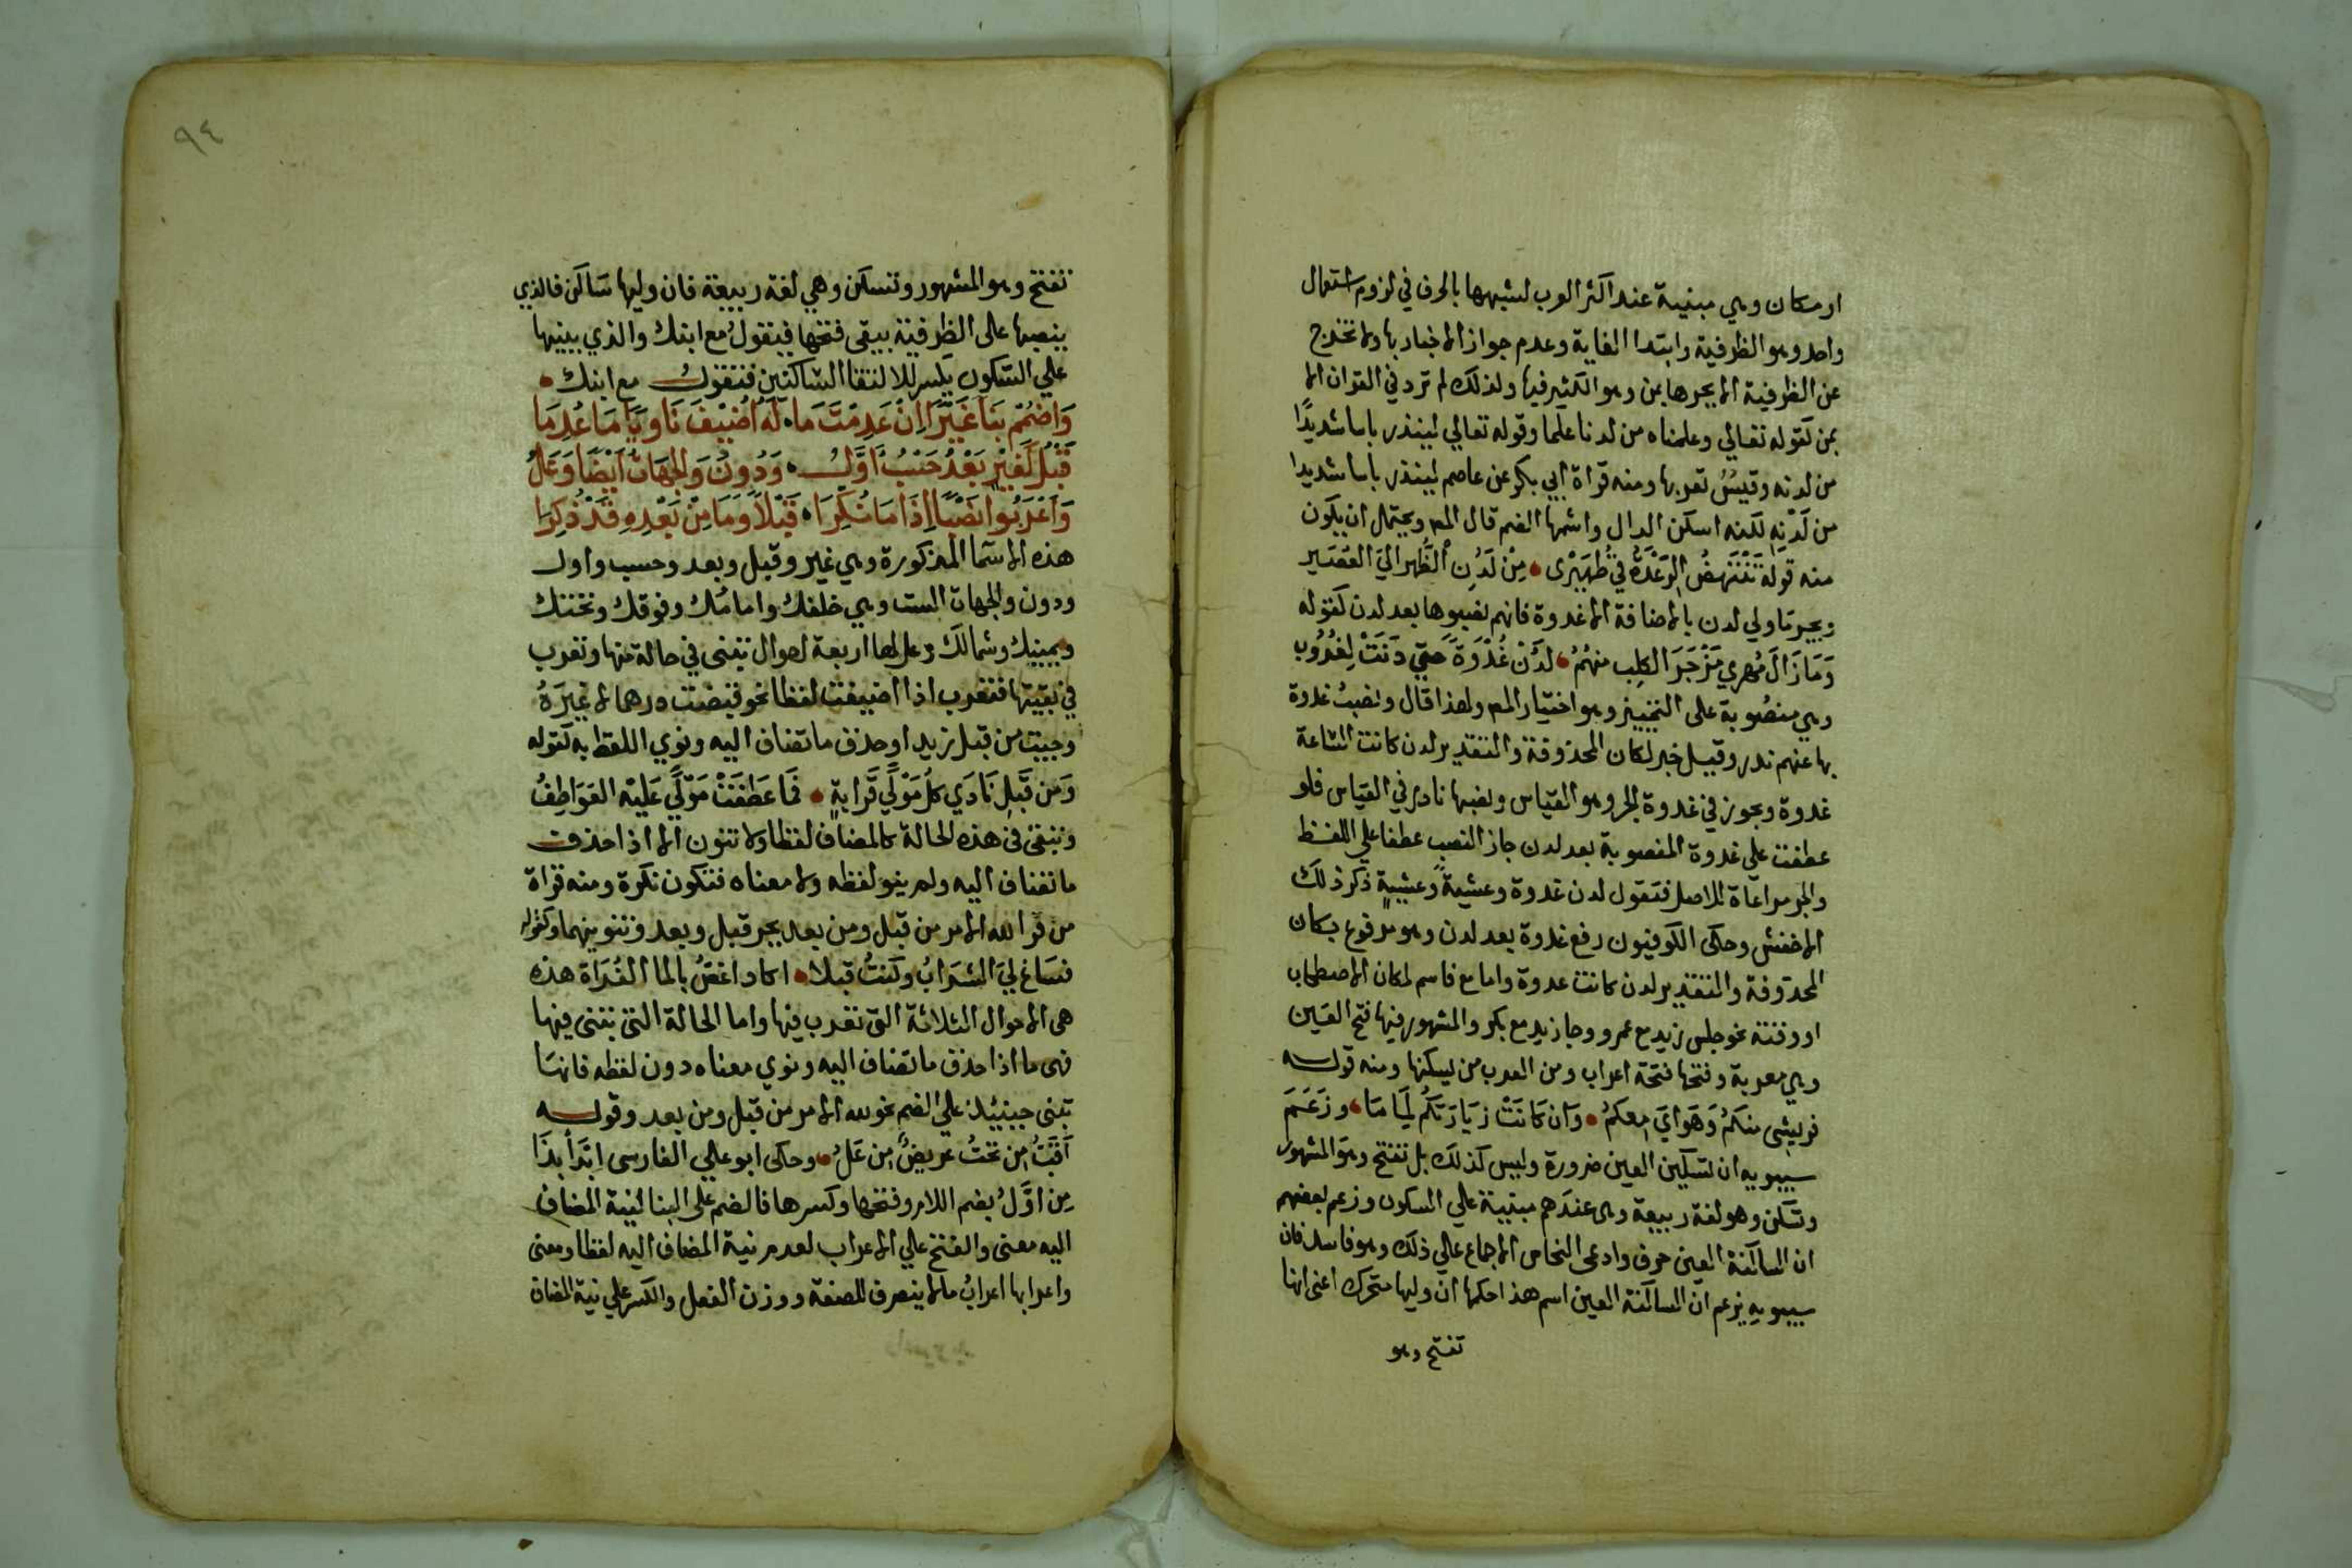 او مكان وهي مبنية عند اكثر العرب لشبهها بالحرف في لزوم استعمال
واحد وهو الظرفية وابتدا الغاية وعدم جواز الاخبار بها ولا تخرج
عن الظرفية الا بجرها بمن وهو الكثير فيها ولذلك لم ترد في القران الا
بمن كقوله تعالي وعلمناه من لدنا علما وقوله تعالي لينذر باسا شديدًا
من لدنه وقيسُ تعربها ومنه قراة ابي بكر عن عاصم لينذر بأسا شديدا
من لَدْنِهِ لكنه اسكن الدال واشمها الضم قال المص ويحتمل ان يكون
منه قوله تَنْتَهِضُ الرِّعْدَةُ في ظُهَيْرِى مِنْ لَدُنِ الظُّهرِ اليَ العُصَيرِ
ويجر ما ولي لدن بالاضافة الا غدوة فانهم نصبوها بعد لدن كقوله
وَمَا زَالَ مُهرِي مَزْجَرَ الكلِب منهُمُ لَدُنْ غُدْوَةً حَتّي دَنَتْ لِغُرُوبِ
وهي منصُوبة على التمييز وهو اختيار المص ولهذا قال ونصبُ غدوة
بها عنهم ندر وقيل خبر لكان المحذوفة والتقدير لدن كانت السّاعة
غدوة ويجوز في غدوة الجر وهو القياس ونصبها نادر في القياس فلو
عطفت علي غدوة المنصوبة بعد لدن جاز النصب عطفا علي اللفظ
والجر مراعاة للاصل فتقول لدن غدوة وعشيةً وعشيةٍ ذكر ذلك
الاخفش وحكى الكوفيون رفع غدوة بعد لدن وهو مرفوع بكان
المحذوفة والتقدير لدن كانت غدوة واما مع فاسم لمكان الاصطحاب
او وقته نحو جلس زيد مع عمرو وجا زيد مع بكر والمشهور فيها فتح العين
وهي معربة وفتحها فتحة اعراب ومن العرب من يسكنها ومنه قوله
فريشى منكمُ وَهَوَايَ معكمُ وَان كَانَتْ زيَارَتكُم لِمَامَا وزَعَمَ
سيبويه ان تسكين العين ضرورة وليس كذلك بل تفتح وهو المشهور
وتسكن وهو لغة ربيعة وهى عندهم مبنية علي السكون وزعم بعضهم
ان الساكنة العين حرف وادعى النحاس الاجماع عالي ذلك وهو فاسد فان
سيبويهِ يزعم ان الساكنة العين اسم هذا حكمها ان وليها متحرك اعنى انها
تفتح وهو
٩٤
تفتح وهو المشهور وتسكن وهي لغة ربيعة فان وليها سَاكن فالذي
ينصبها على الظرفية يبقى فتحها فيقولُ مع ابنك والذي يبنيها
علي السّكون يكسر للالتقا الساكنين فتقول مع ابنك
وَاضْمُمْ بِنَا غَيْرًا اِنْ عَدِمْتَ مَا لَهُ اُضِيْفَ نَاوِيًا مَا عُدِمَا
قَبْلُ كَغَيْرِ بَعْدُ حَسْبُ اَوَّلُ وَدُونُ وَالجِهَاتُ اَيْضًا وَعَلُ
وَاَعْرَبُوا نَصْبًا اِذَا مَا نُكِّرَا قَبْلاً وَمَا مِنْ بَعْدِهِ قَدْ ذُكِرَا
هذه الاسما المذكورة وهي غير وقبل وبعد وحسب واول
ودون والجهات الست وهي خلفك وامامُك وفوقك وتحتك
ويمينك وشمالك وعل لها اربعة احوال تبنى في حالة منها وتعرب
في بقيتها فتعرب اذا اضيفت لفظا نحو قبضت درهما لا غيرَهُ
وجيت من قبل زيد او حذف ما تضاف اليه ونوي اللفظ به كقوله
وَمَن قَبلِ نَادَي كلُ مَوْلًي قَرابةٍ فَما عَطَفَتْ مَوْلًي عَليْه العَوَاطِفُ
وتبقى في هذه الحالة كالمضاف لفظا ولا تنون الا اذا حذف
ما تضاف اليه ولم ينو لفظه ولا معناه فتكون نكرة ومنه قراة
من قرا لله الامر من قبلٍ ومن بعدٍ بجر قبل وبعد وتنوينهما وكقوله
فسَاغ ليَ الشرَابُ وكنتُ قبلا اكاد اغصُّ بالما الفُرَاة هذه
هى الاحوال الثلاثة التى تعرب فيها واما الحالة التى تبنى فيها
فهى ما اذا حذف ما تضاف اليه ونوي معناه دون لفظه فانهَا
تبنى حينيذ علي الضم نحو لله الامر من قبل ومن بعد وقوله
اَقَبُّ مِن تحتُ عريضٌ مِن عَلُ وحكى ابو علي الفارسى ابْدَأْ بذَا
مِن اوَّلُ بضم اللام وفتحها وكسرها فالضم على البنا لنية المضاف
اليه معنى والفتح علي الاعراب لعدم نية المضاف اليه لفظا ومعنى
واعرابها اعرابُ ما لا ينصرف للصفة ووزن الفعل والكسر علي نية المضاف